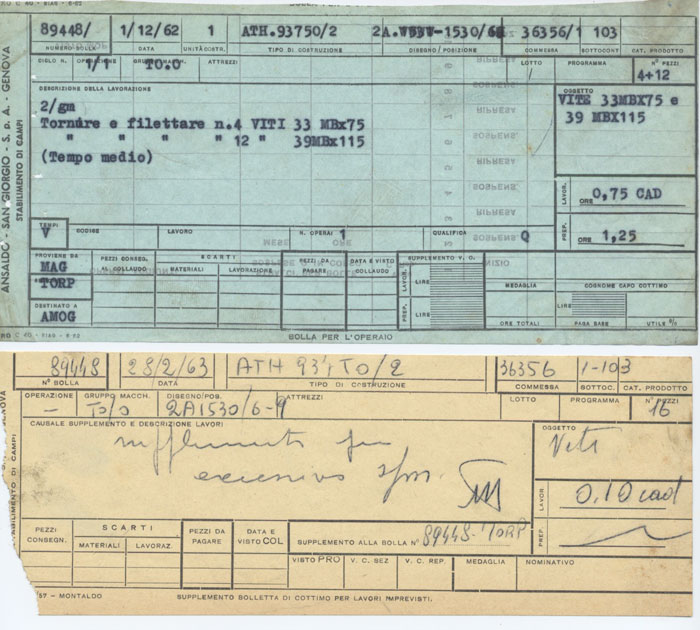 ANSALDO - SAN GIORGIO - S. p. A. - GENOVA
STABILIMENTO DI CAMPI
89448/ 1/12/62 1 ATH.93750/2 2A. -1530/6 36356/1 103
NUMERO BOLLA DATA UNITÀ COSTR. TIPO DI COSTRUZIONE DISEGNO/POSIZIONE COMMESSA SOTTOCONT. CAT. PRODOTTO
CICLO N. OPERAZIONE ATTREZZI LOTTO PROGRAMMA N° PEZZI
1/1 TO.O 4+12
DESCRIZIONE DELLA LAVORAZIONE OGGETTO
2/gm VITE 33MBX75 e
Tornire e filettare n.4 VITI 33 MBx75 39 MBX115
" " " " 12 " 39MBx115
(Tempo medio)
LAVOR. ORE 0,75 CAD
TEMPI CODICE LAVORO N. OPERAI 1 QUALIFICA Q PREP. ORE 1,25
V
PROVIENE DA PEZZI CONSEG. AL COLLAUDO SCARTI PEZZI DA PAGARE DATA E VISTO COLLAUDO SUPPLEMENTO V. C.
MAG MATERIALI LAVORAZIONE LAVOR. LIRE MEDAGLIA COGNOME CAPO COTTIMO
TORP
DESTINATO A PREP. LIRE LIRE
AMOG ORE TOTALI PAGA BASE UTILE %
BOLLA PER L'OPERAIO
89448 28/2/63 ATH 937TO/2 36356 1-103
N° BOLLA DATA TIPO DI COSTRUZIONE COMMESSA BOTTOC. CAT. PRODOTTO
OPERAZIONE GRUPPO MACCH. DISEGNO/POS. ATTREZZI LOTTO PROGRAMMA N° PEZZI
- TO/O 2A1530/6-9 16
CAUSALE SUPPLEMENTO E DESCRIZIONE LAVORI OGGETTO
supplemento per Viti
eccessivo
LAVOR 0.10 cad
PREP.
PEZZI CONSEGN. SCARTI PEZZI DA PAGARE DATA E VISTO COL SUPPLEMENTO ALLA BOLLA N° 89448-TORP
MATERIALI LAVORAZ. VISTO PRO V. C. SEZ V. C. REP. MEDAGLIA NOMINATIVO
57 - MONTALDO SUPPLEMENTO BOLLETTA DI COTTIMO PER LAVORI IMPREVISTI.